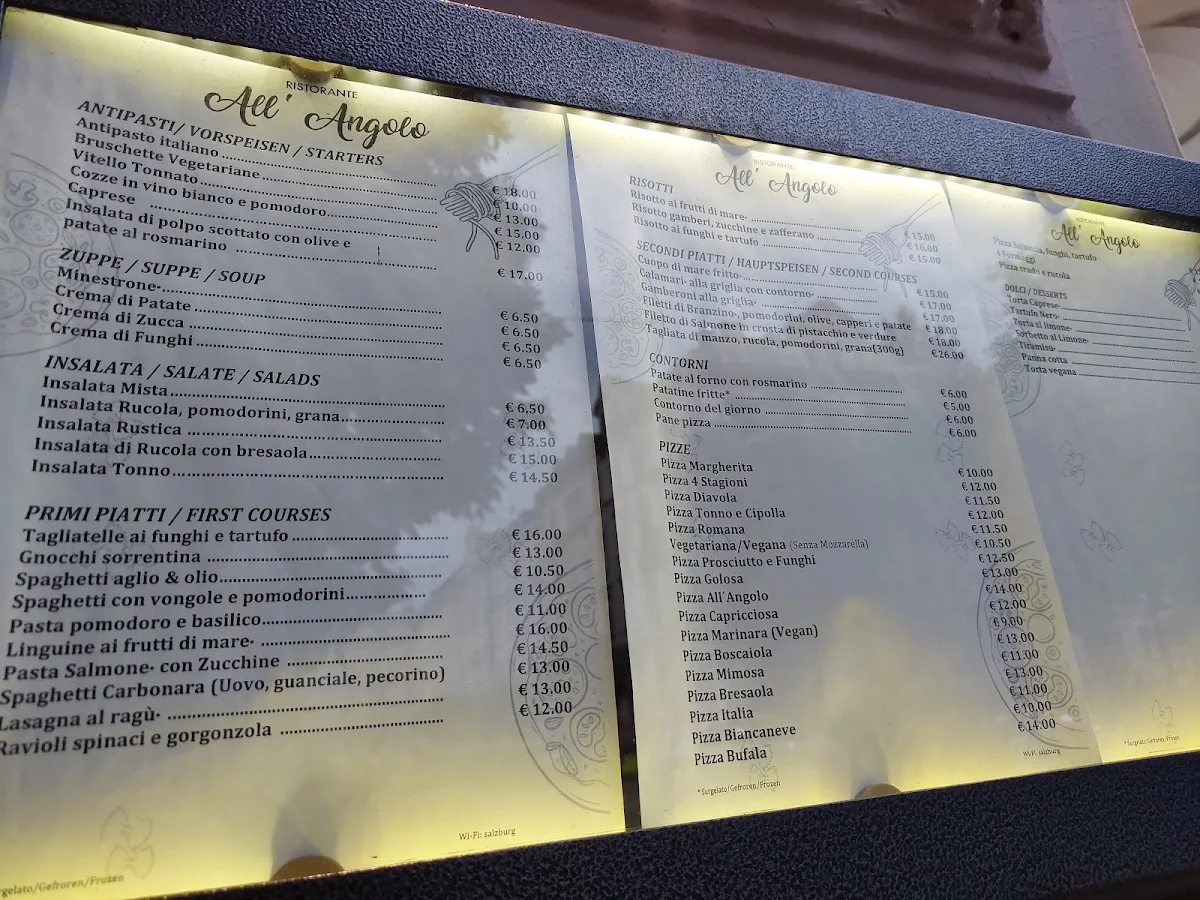 RISTORANTE
All' Angolo
ANTIPASTI/ VORSPEISEN / STARTERS
Antipasto italiano ........ € 18.00
Bruschette Vegetariane ........ € 10.00
Vitello Tonnato ........ € 13.00
Cozze in vino bianco e pomodoro ........ € 15.00
Caprese ........ € 12.00
Insalata di polpo scottato con olive e
patate al rosmarino ........ € 17.00
ZUPPE / SUPPE / SOUP
Minestrone· ........ € 6.50
Crema di Patate ........ € 6.50
Crema di Zucca ........ € 6.50
Crema di Funghi ........ € 6.50
INSALATA / SALATE / SALADS
Insalata Mista ........ € 6.50
Insalata Rucola, pomodorini, grana ........ € 7.00
Insalata Rustica ........ € 13.50
Insalata di Rucola con bresaola ........ € 15.00
Insalata Tonno ........ € 14.50
PRIMI PIATTI / FIRST COURSES
Tagliatelle ai funghi e tartufo ........ € 16.00
Gnocchi sorrentina ........ € 13.00
Spaghetti aglio & olio ........ € 10.50
Spaghetti con vongole e pomodorini ........ € 14.00
Pasta pomodoro e basilico ........ € 11.00
Linguine ai frutti di mare· ........ € 16.00
Pasta Salmone· con Zucchine ........ € 14.50
Spaghetti Carbonara (Uovo, guanciale, pecorino) € 13.00
Lasagna al ragù· ........ € 13.00
Ravioli spinaci e gorgonzola ........ € 12.00
Wi-Fi: salzburg
/Gefroren/Frozen
RISTORANTE
All' Angolo
RISOTTI
Risotto ai frutti di mare· ........ € 15.00
Risotto gamberi, zucchine e zafferano ........ € 16.00
Risotto ai funghi e tartufo ........ € 15.00
SECONDI PIATTI / HAUPTSPEISEN / SECOND COURSES
Cuopo di mare fritto· ........ € 15.00
Calamari· alla griglia con contorno· ........ € 17.00
Gamberoni alla griglia· ........ € 17.00
Filetti di Branzino·, pomodorini, olive, capperi e patate € 18.00
Filetto di Salmone in crosta di pistacchio e verdure € 18.00
Tagliata di manzo, rucola, pomodorini, grana(300g) €26.00
CONTORNI
Patate al forno con rosmarino ........ € 6.00
Patatine fritte* ........ € 5.00
Contorno del giorno ........ € 6.00
Pane pizza ........ € 6.00
PIZZE
Pizza Margherita € 10.00
Pizza 4 Stagioni € 12.00
Pizza Diavola € 11.50
Pizza Tonno e Cipolla € 12.00
Pizza Romana € 11.50
Vegetariana/Vegana (Senza Mozzarella) € 10.50
Pizza Prosciutto e Funghi € 12.50
Pizza Golosa € 13.00
Pizza All´Angolo € 14.00
Pizza Capricciosa € 12.00
Pizza Marinara (Vegan) € 9.00
Pizza Boscaiola € 13.00
Pizza Mimosa € 11.00
Pizza Bresaola € 13.00
Pizza Italia € 11.00
Pizza Biancaneve € 10.00
Pizza Bufala € 14.00
* Surgelato/Gefroren/Frozen
Wi-Fi: salzburg
RISTORANTE
All' Angolo
Pizza Salsiccia, funghi, tartufo
4 Formaggi
Pizza crudo e rucola
DOLCI / DESSERTS
Torta Caprese· ........
Tartufo Nero· ........
Torta al limone· ........
Sorbetto al Limone· ........
Tiramisu· ........
Panna cotta ........
Torta vegana ........
* Surgelato/Gefroren/Frozen